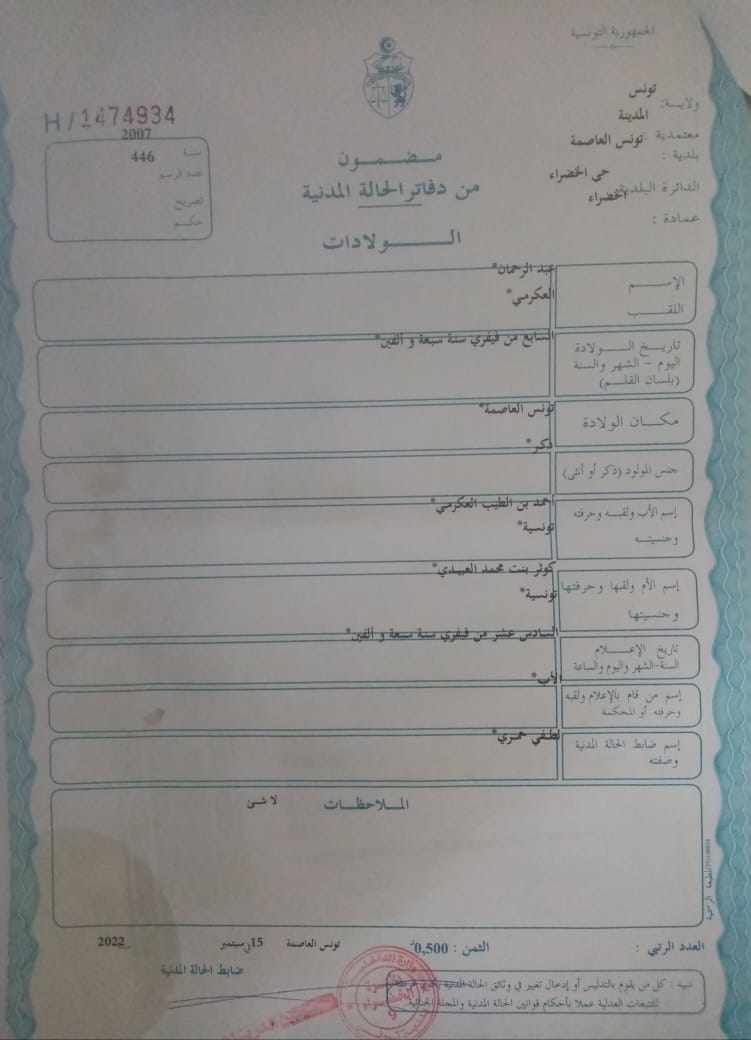 الجمهورية التونسية
ولايـة: تونس
معتمدية : المدينة
بلدية : تونس العاصمة
الدائرة البلدية حي الخضراء
عمادة : الخضراء
H/1474934
سنة 2007
عدد الرسم 446
تصريح
حكم
مـضـمـون
من دفاتر الحالة المدنية
الـولادات
الإسـم عبد الرحمان*
اللقـب العكرمي*
تاريـخ الـولادة السابع من فيفري سنة سبعة و ألفين*
اليوم - الشهر والسنة
(بلسان القلـم)
مكـان الولادة تونس العاصمة*
جنس المولود (ذكر أو أنثى) ذكر*
إسم الأب ولقبـه وحرفته أحمد بن الطيب العكرمي*
وجنسيتـه تونسية*
إسم الأم ولقبها وحرفتها كوثر بنت محمد العبيدي*
وجنسيتها تونسية*
تاريخ الإعـلام السادس عشر من فيفري سنة سبعة و ألفين*
السنة-الشهر واليوم والساعة
إسم من قام بالإعلام ولقبه الأب*
وحرفته أو المحكمة
إسم ضابط الحالة المدنية لطفي حمري*
وصفته
الملاحظات لا شئ
العدد الرتبي :
الثمن : 0,500د
تونس العاصمة في 15 سبتمبر 2022
ضابط الحالة المدنية
تنبيه : كل من يقوم بالتدليس أو إدخال تغيير في وثائق الحالة المدنية
للتتبعات العدلية عملا بأحكام قوانين الحالة المدنية والمجلة الجنائية.
المطبعة الرسمية
وزارة الداخلية
الخضراء
9